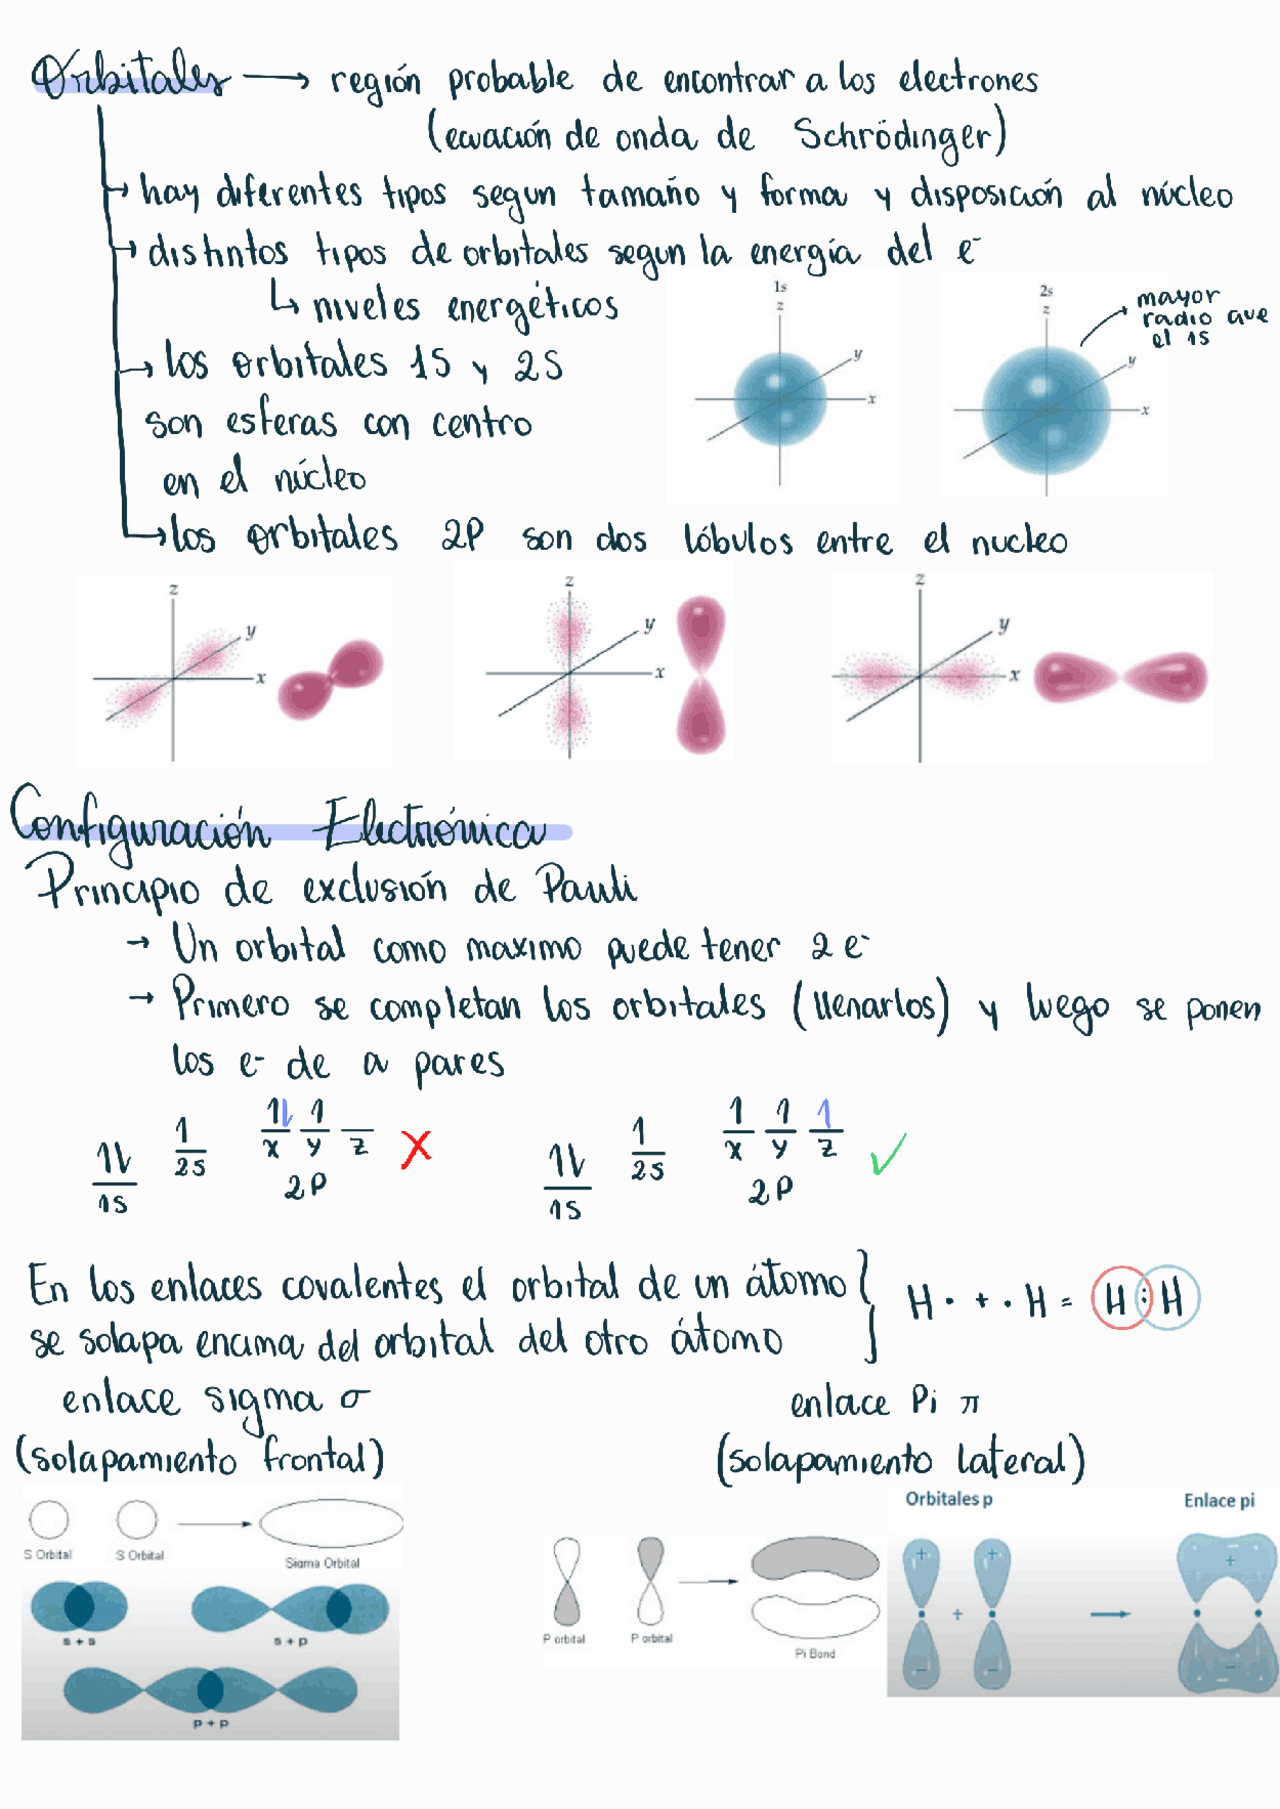 Orbitales → región probable de encontrar a los electrones
(ecuación de onda de Schrödinger)
→ hay diferentes tipos segun tamaño y forma y disposición al núcleo
→ distintos tipos de orbitales segun la energía del e-
↳ niveles energéticos
1s
z
y
x
2s
z
y
x
→ mayor
radio que
el 1s
→ los orbitales 1S y 2S
son esferas con centro
en el núcleo
→ los orbitales 2P son dos lóbulos entre el nucleo
z
y
x
z
y
x
z
y
x
Configuración Electrónica
Principio de exclusión de Pauli
→ Un orbital como maximo puede tener 2 e-
→ Primero se completan los orbitales (llenarlos) y luego se ponen
los e- de a pares
1L 1 1L 1
1S 2S x y z X
2P
1L 1 1 1 1
1S 2S x y z ✓
2P
En los enlaces covalentes el orbital de un átomo
se solapa encima del orbital del otro átomo
H· + ·H = H:H
enlace sigma σ
(solapamiento frontal)
enlace Pi π
(solapamiento lateral)
S Orbital S Orbital Sigma Orbital
s + s s + p
p + p
P orbital P orbital Pi Bond
Orbitales p Enlace pi
+ + +
+
- - -